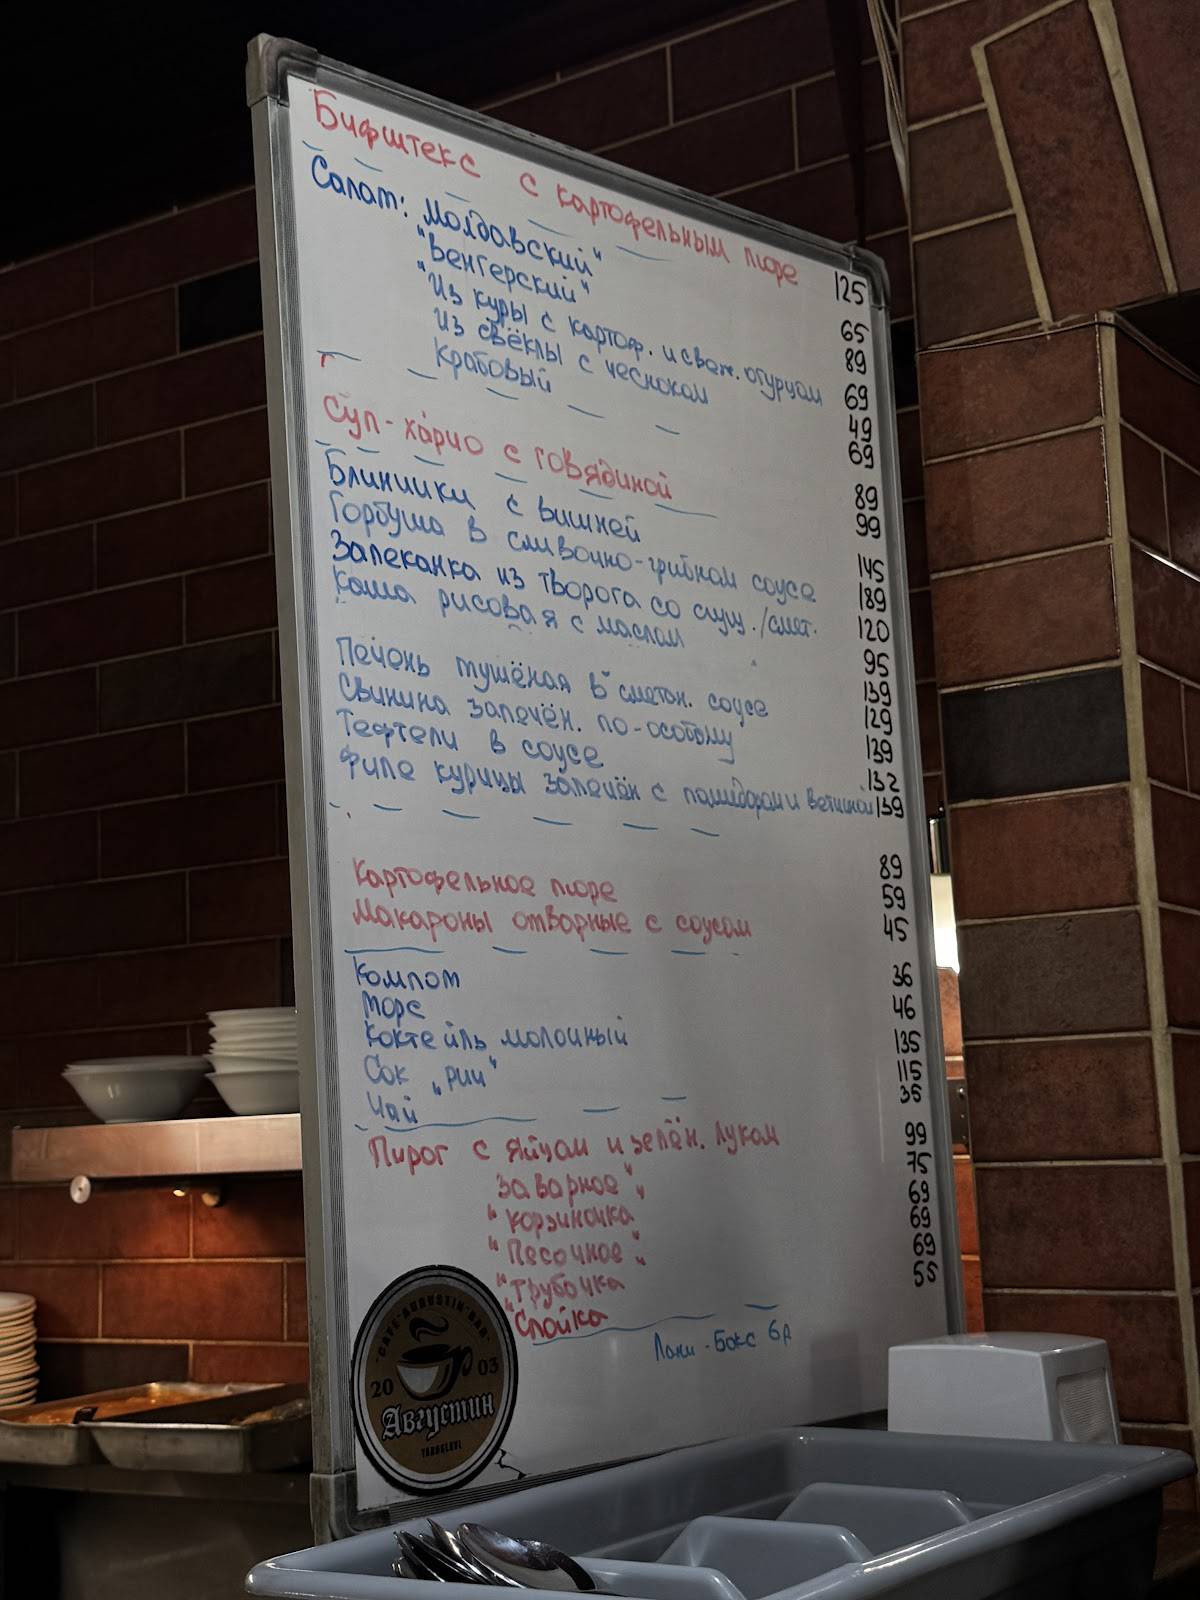 Бифштекс с картофельным пюре 125
Салат: Молдавский" 65
"Венгерский" 89
"Из куры с картоф. и свеж. огурцом 69
Из свёклы с чесноком 49
Крабовый 69
Суп-харчо с говядиной 89
99
Блинчики с вишней 145
Горбуша в сливочно-грибном соусе 189
Запеканка из творога со сгущ./смет. 120
Каша рисовая с маслом 95
Печень тушёная в сметан. соусе 139
Свинина запечён. по-особому 129
Тефтели в соусе 139
132
Филе курицы запечён с помидорами ветчиной 139
89
Картофельное пюре 59
Макароны отварные с соусом 45
Компот 36
Морс 46
Коктейль молочный 135
Сок "Рич" 115
Чай 35
Пирог с яйцом и зелён. луком 99
Заварное" 75
"Корзиночка 69
"Песочное" 69
"Трубочка 69
"Слойка 55
Ланч-Бокс 6р
CAFE AUGUSTIN BAR
20 03
Августин
YAROSLAVL